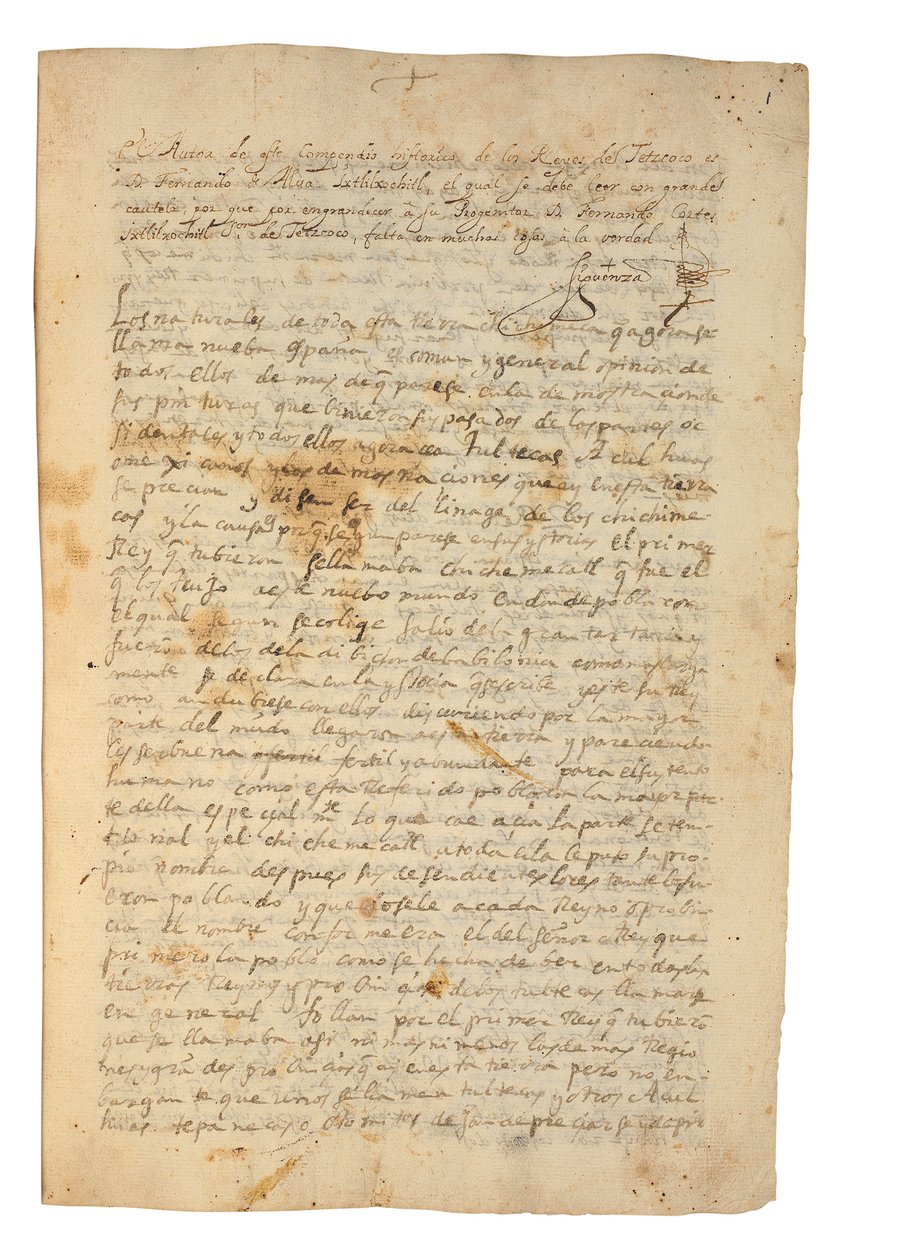 1
El Autor de este Compendio historico de los Reyes de Tetzcoco es
D. Fernando de Alva Ixtlilxochitl, el qual se debe leer con grande
cautela, por que por engrandecer â su Progenitor D. Fernando Cortes
Ixtlilxochitl Sor. de Tetzcoco, falta en muchas cosas â la verdad
Siguenza
Los naturales de toda esta tierra chichimeca q agora se
llama nueba españa es comun y general opinion de
todos ellos de mas de q̃ parese en la demostracion de
sus pinturas que binieron sus pasados de los partes oc
sidentales y todos ellos agora tultecas Aculhuas
mexicanos y las demas naciones que ay en esta tierra
se precian y disen ser del linage de los chichime
cas y la causa porq̃ segun parese en sus ystorias el primer
Rey q̃ tubieron se llamaba chichemecatl q̃ fue el
q̃ los trujo a este nuebo mundo en donde poblaron
el qual segun se colige salio de la gran tartaria y
fuerõ de los de la dibicion de babilonia como mas larga
mente se declara en la ystoria q̃ se escribe y este su Rey
como andubiese con ellos discurriendo por la mayor
parte del mũdo llegaron a esta tierra y pareciendo
les ser buena fertil y abundante para el sustento
humano como esta Referido poblaron la mayor par
te della especialmte lo que cae acia la parte setem-
trional y el chichemecatl a toda ella le puso su pro-
pio nombre despues sus desendientes lo restante lo fu
eron poblando y quedosele a cada Reyno o probin-
cia el nombre conforme era el del señor o Rey que
primero la poblo como se hecha de ber en todas las
tierras Reynos y probincias de los tultecas llamar
en general tollan por el primer Rey q̃ tubierõ
que se llamaba asi ni mas ni menos las demas Regio
nes y grãdes probincias q̃ ai en esta tierra pero no en-
bargante que unos se llamen tultecas y otros Acul
huas tepanecas o otomites dejan de preciarse y desir